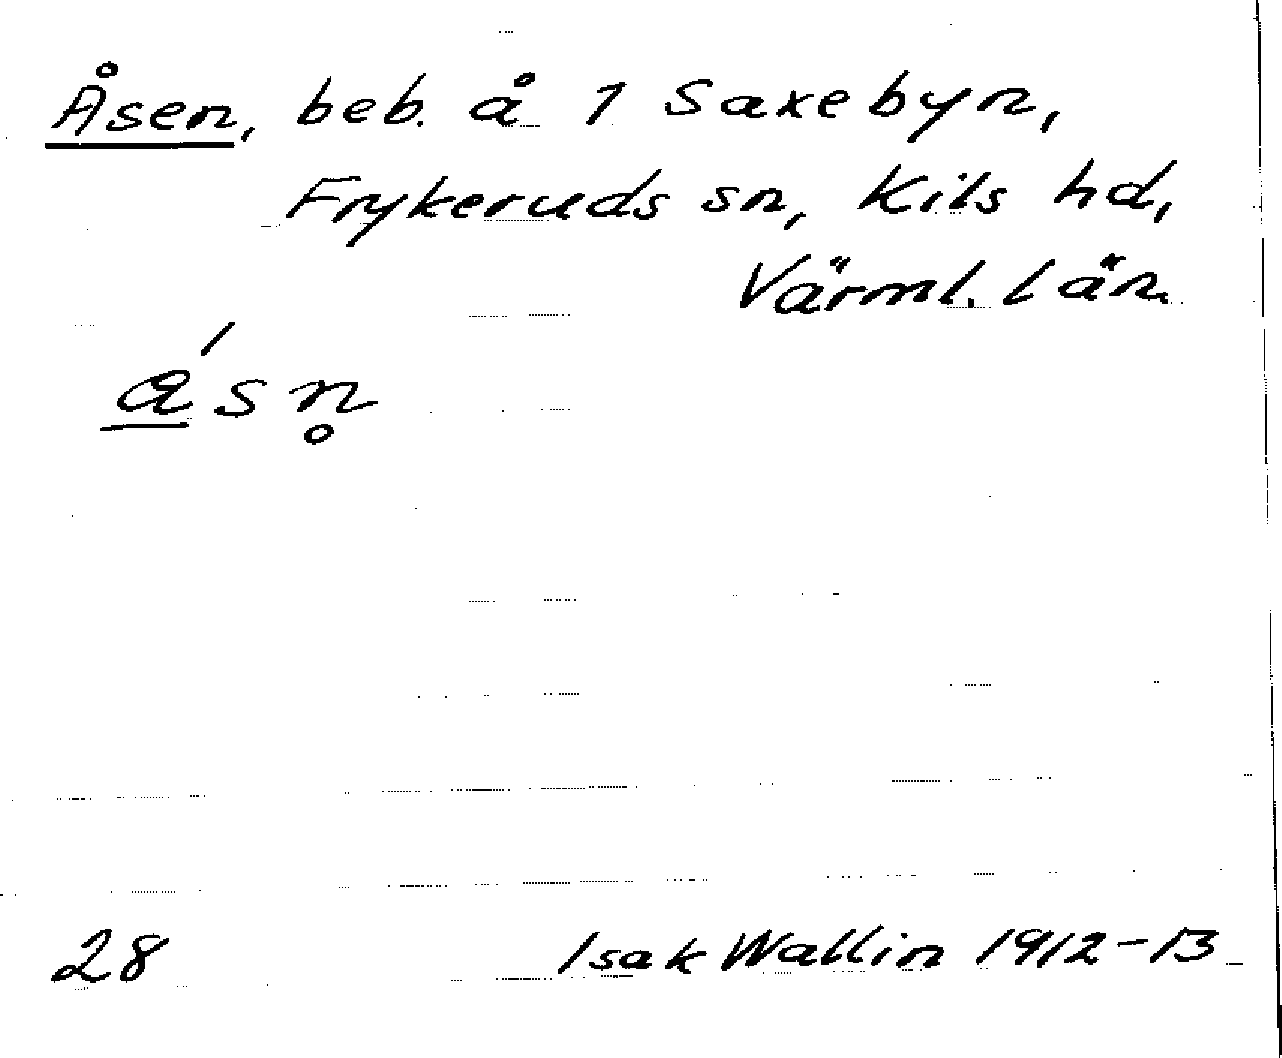 Åsen, beb. å 1 Saxebyn,
Frykeruds sn, Kils hd,
Värml. län.
a̲´sn̥
28 Isak Wallin 1912-13